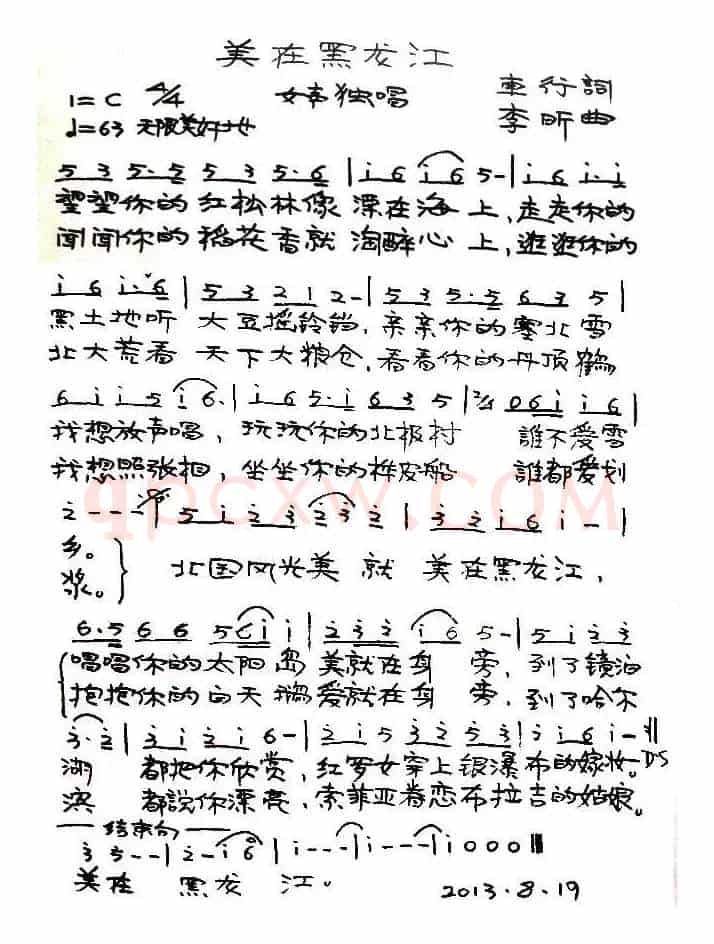 美在黑龙江
1=C 4/4 女声独唱 車行詞
♩=63 无限美好地 李昕曲
5 3 5·5 5 3 5·6 | i 6 i 6 5- | i 6 i·i
望望你的红松林像漂在海上,走走你的
闻闻你的稻花香就淘醉心上,逛逛你的
i 6 i·6 | 5 3 2 1 2- | 5 3 5·5 6 3 5 |
黑土地听大豆摇铃铛,亲亲你的塞北雪
北大荒看天下大粮仓,看看你的丹顶鹤
6 i i 5 i 6· | i 6 5·i 6 3 5 | 2/4 0 6 i i 6 |
我想放声唱,玩玩你的北极村 誰不爱雪
我想照张相,坐坐你的桦皮船 誰都爱划
qpcxw.com
2 - - - | 5 i 2 3 2 3 2 | 3 2 i 6 i - |
乡。 北国风光美就美在黑龙江,
浆。
6·5 6 6 5 i i | 2 3 2 i 6 5- | 5 i 2 3
唱唱你的太阳岛美就在身旁,到了镜泊
抱抱你的白天鹅爱就在身旁,到了哈尔
3·2 | 3 i 2 i 6- | 2 i 5 3 2 5 3 | i i 6 i - ‖ D.S
湖 都把你欣赏,红罗女穿上银瀑布的嫁妆。
滨 都説你漂亮,索菲亚眷恋布拉吉的姑娘。
结束句
3 5 - - | 2 - i 6 | i - - - | i - - - | i 0 0 0 ‖
美在 黑龙 江。 2013.8.19